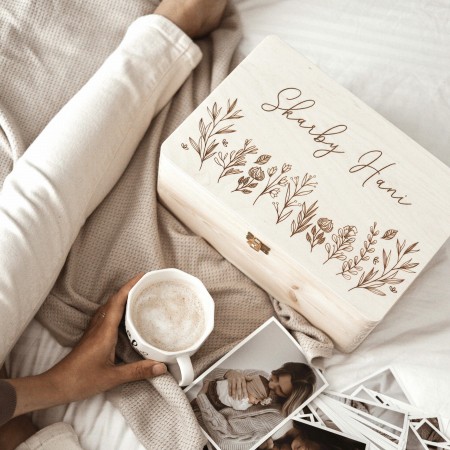 Skarby Huni